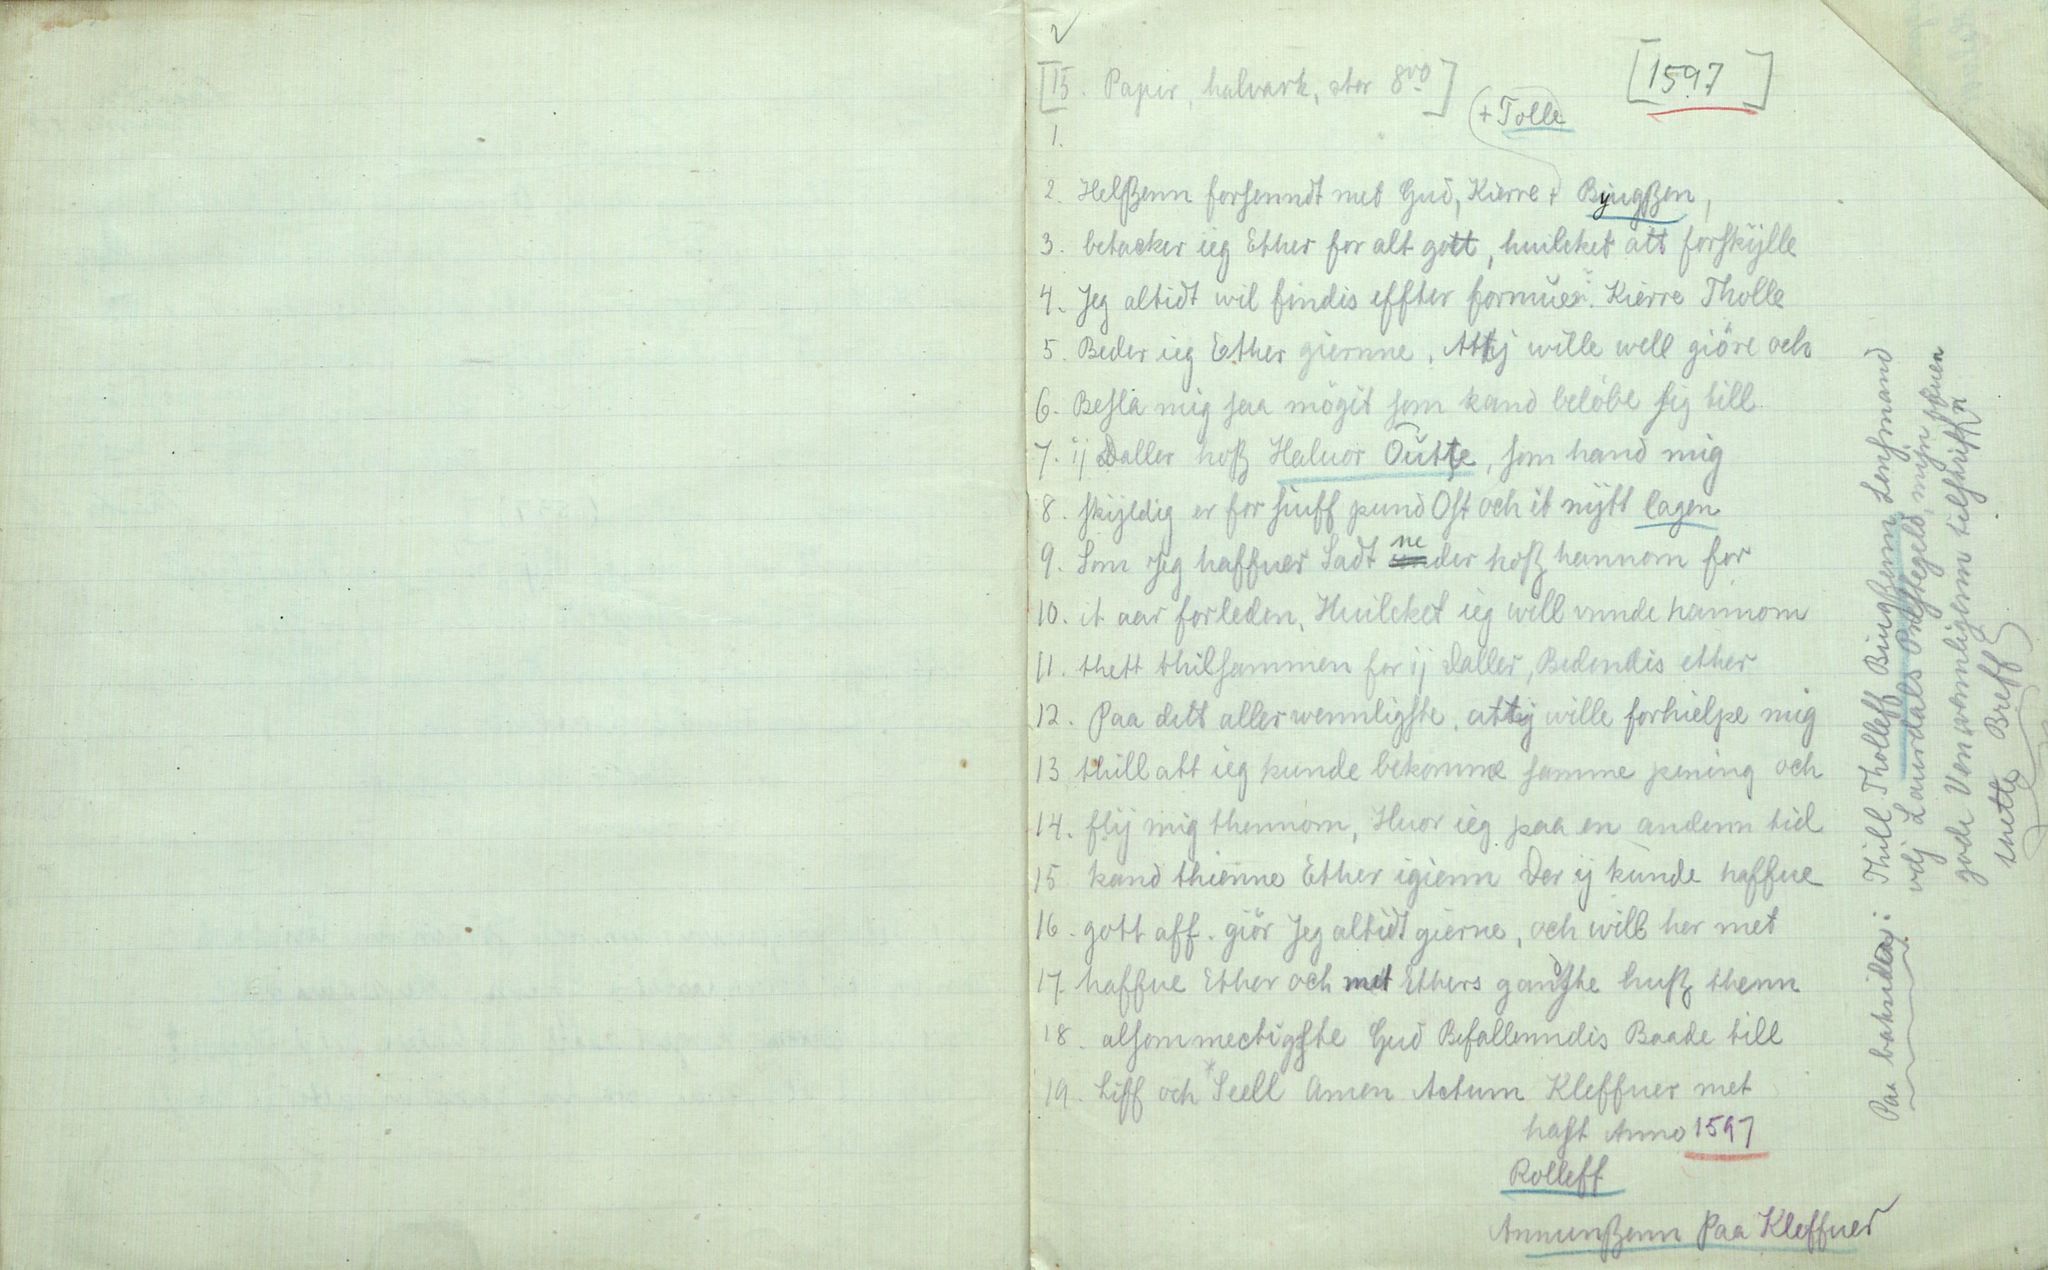 [15. Papir, halvark, stor 8vo]
[1597]
+ Tolle
1.
2. Helßenn forsenndt met Gud, Kierre + Byngßen,
3. betacker ieg Ether for alt gott, huilcket att forskylle
4. Jeg altidt wil findis effter formue. Kierre Tholle
5. Beder ieg Ether giernne, Attij wille well giöre och
6. Besla mig saa mögit som kand beløbe sig till
7. ij Daller hoß Haluor Outte, som hand mig
8. skyldig er for siuff pund Ost och it nytt lagen
9. Som Jeg haffuer Sadt neder hoß hannom for
10. it aar forleden, Huilcket ieg well vnnde hannom
11. thett thilsammen for ij daller, Bedendis ether
12. Paa dett allerwennligste, attij wille forhielpe mig
13 thill att ieg kunde bekomme samme pening och
14. flij mig thennom, Huor ieg paa en andenn tid
15 kand thienne Ether igienn Der ij kunde haffue
16. gott aff. giör Jeg altidt gierne, och will her met
17. haffue Ether och met Ethers ganste huß thenn
18. alsommectigste Gud Befallenndis Baade till
19. Liff och Seell Amen Actum Kleffuer met
hast Anno 1597
Rolleff
AmunnßeNn Paa Kleffuer
Paa baksiden: Thill Tholleff Bingßenn Lensmand
vdj Laurdals Prestegeld, myn
gode Ven wennligenn tilskriffuen
thette Breff